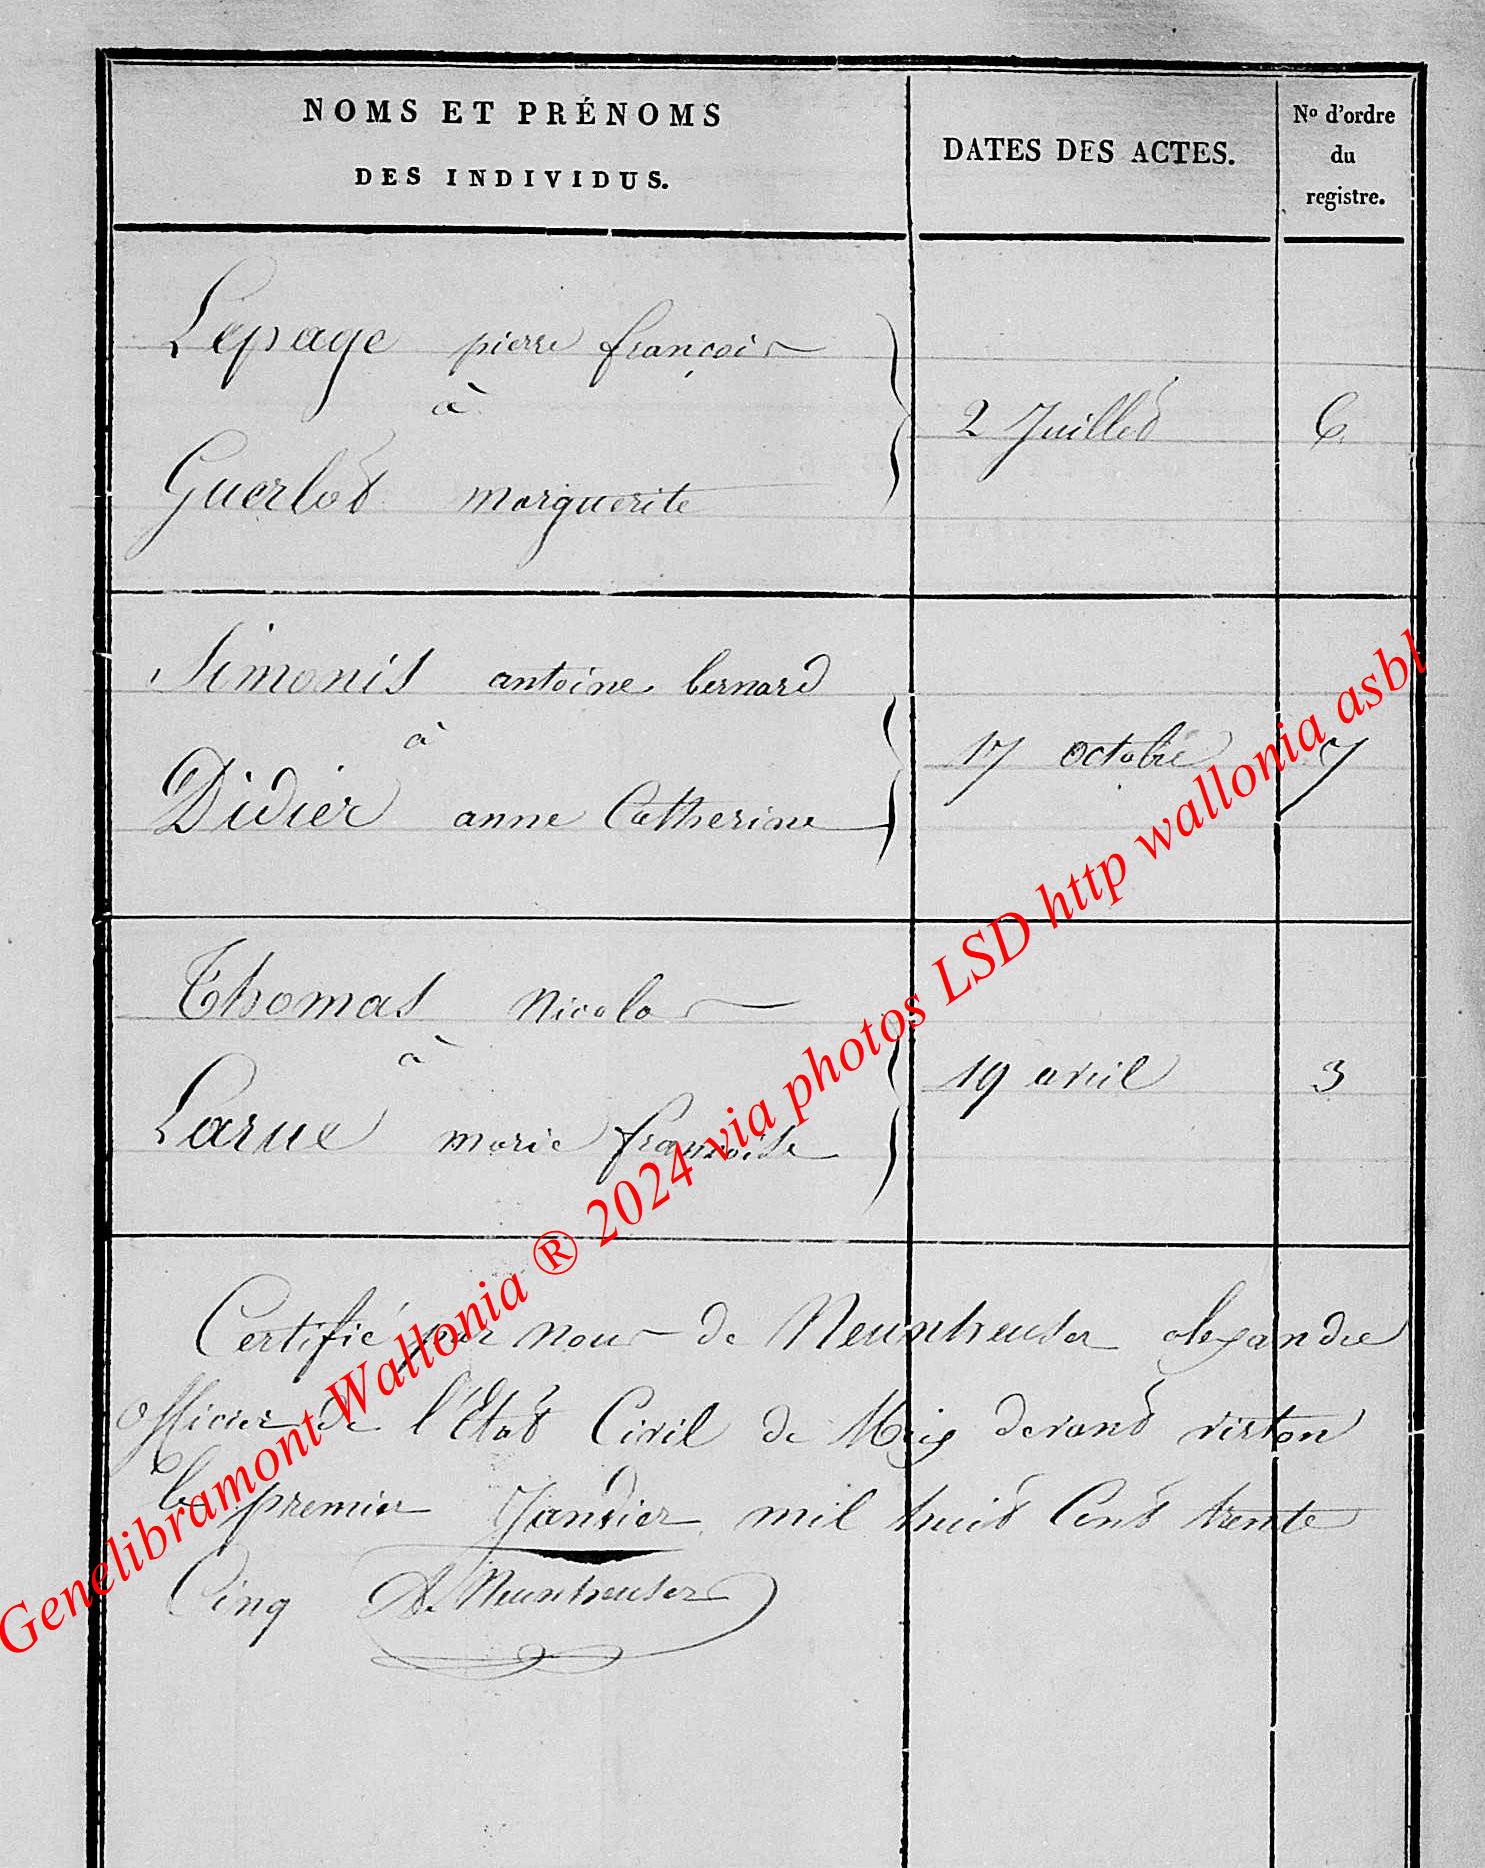 NOMS ET PRÉNOMS
DES INDIVIDUS.
DATES DES ACTES.
Nº d'ordre
du
registre.
Lepage pierre françois
à
Guerlot marguerite
2 Juillet
6
Simonis antoine bernard
à
Didier anne Catherine
17 octobre
7
Thomas Nicolas
à
Larue marie françoise
19 avril
3
Certifié par nous de Neunheuser alexandre
officier de l'Etat Civil de Meix devant virton
le premier Janvier mil huit Cent trente
Cinq A. Neunheuser
Genelibramont Wallonia ® 2024 via photos LSD http wallonia asbl